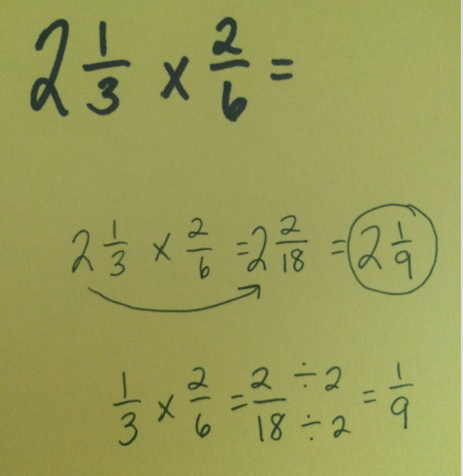 2 1/3 x 2/6 =
2 1/3 x 2/6 = 2 2/18 = 2 1/9
1/3 x 2/6 = 2/18 ÷2/÷2 = 1/9